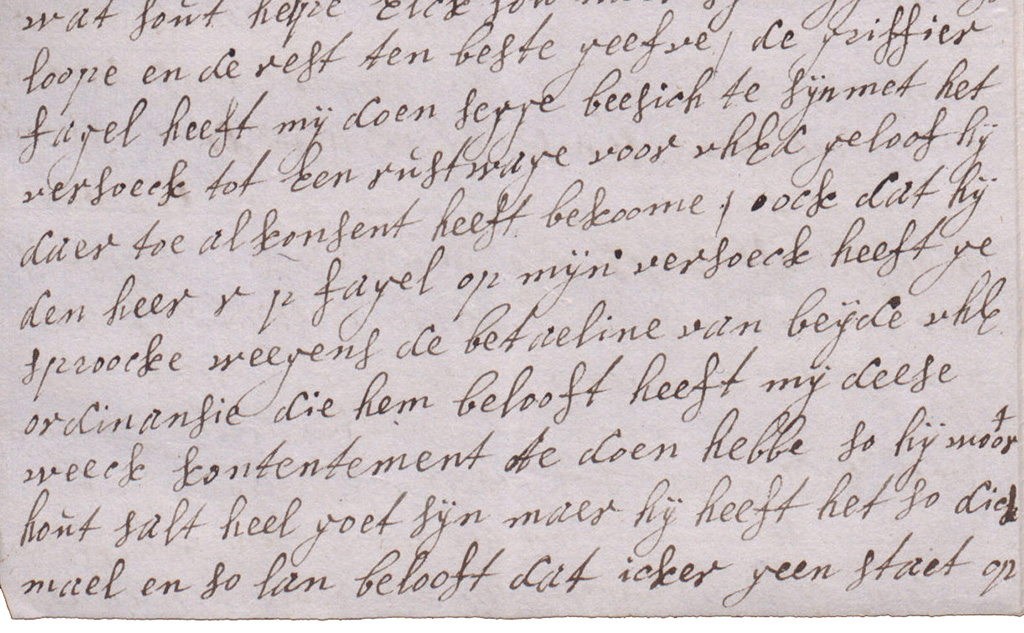 wat hout helpe Elck sou
loope en de rest ten beste geefve / de griffier
fagel heeft mÿ doen segge beesich te sÿn met het
versoeck tot Een rustwage voor uhEd geloof hÿ
daer toe al konsent heeft bekoome / oock dat hÿ
den heer r p fagel op mÿn versoeck heeft ge
sproocke weegens de betaeline van beÿde uhE
ordinansie die hem belooft heeft mÿ deese
weeck kontentement te doen hebbe so hÿ woort
hout salt heel goet sÿn maer hÿ heeft het so dick
mael en so lan belooft dat icker geen staet op